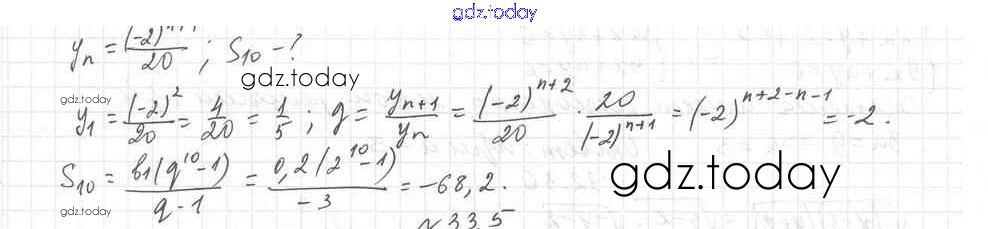 gdz.today
y_n = (-2)^{n+1}/20 ; S_10 - ?
gdz.today
gdz.today
y_1 = (-2)^2/20 = 4/20 = 1/5 ; g = y_{n+1}/y_n = (-2)^{n+2}/20 · 20/(-2)^{n+1} = (-2)^{n+2-n-1} = -2.
S_10 = b_1(q^{10}-1)/(q-1) = 0,2(2^{10}-1)/(-3) = -68,2.
gdz.today
gdz.today
№335